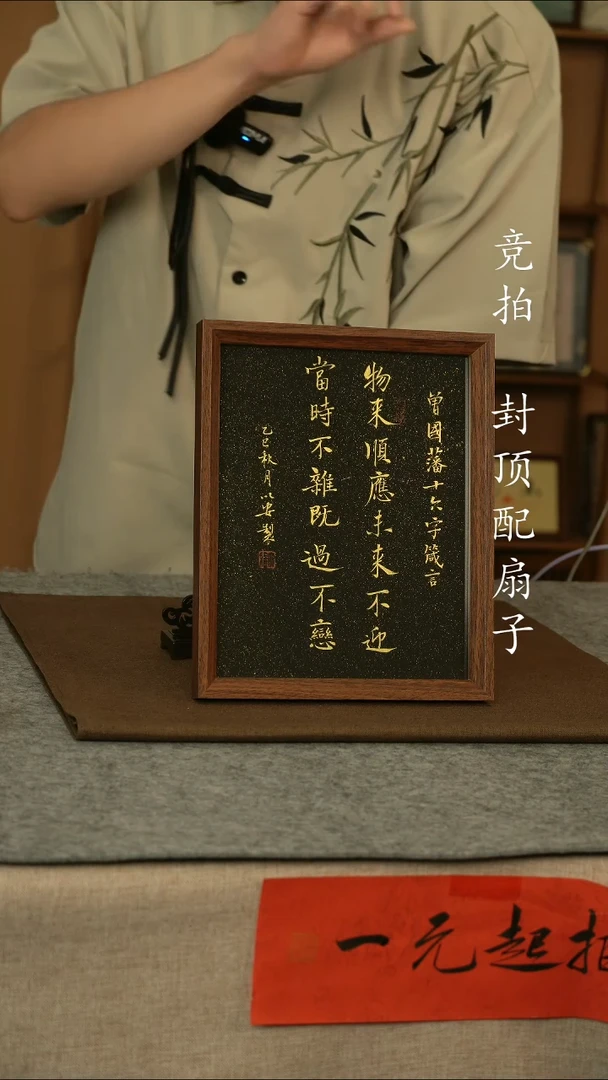 曾國藩十六字箴言
物来順應未来不迎
當時不雜既過不戀
乙巳秋月以安製
竞拍 封顶配扇子
一元起拍